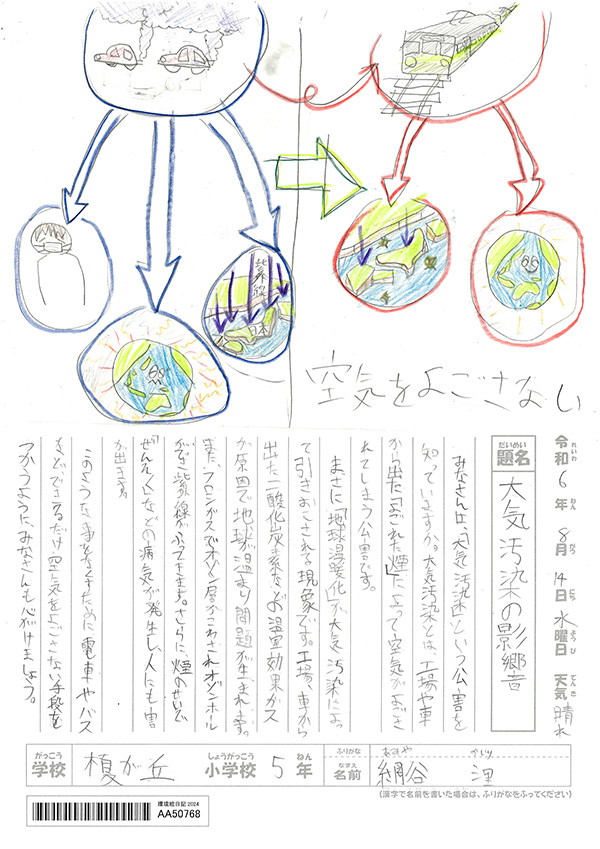 紫外線
日本
空気をよごさない
令和6年8月14日水曜日 天気 晴れ
れいわ ねん がつ にち ようび てんき
だいめい
題名
大気汚染の影響
みなさんは、「大気汚染」という公害を
知っていますか。大気汚染とは、工場や車
から出た「よごれた煙」によって空気がよごさ
れてしまう公害です。
まさに「地球温暖化」が大気汚染によっ
て引きおこされる現象です。工場、車から
出た二酸化炭素などの温室効果ガス
が原因で地球が温まり問題が生まれます。
また、フロンガスでオゾン層がこわされオゾンホール
ができ紫外線がふってきます。さらに、煙のせいで
「ぜんそく」などの病気が発生し、人にも害
が出ます。
このような事をなくすために電車やバス
などできるだけ空気をよごさない手段を
つかうように、みなさんも心がけましょう。
がっこう
学校
榎が丘
しょうがっこう
小学校
5
ねん
年
ふりがな
なまえ
名前
網谷 浬
あみや かいり
(漢字で名前を書いた場合は、ふりがなをふってください)
環境絵日記2024
AA50768